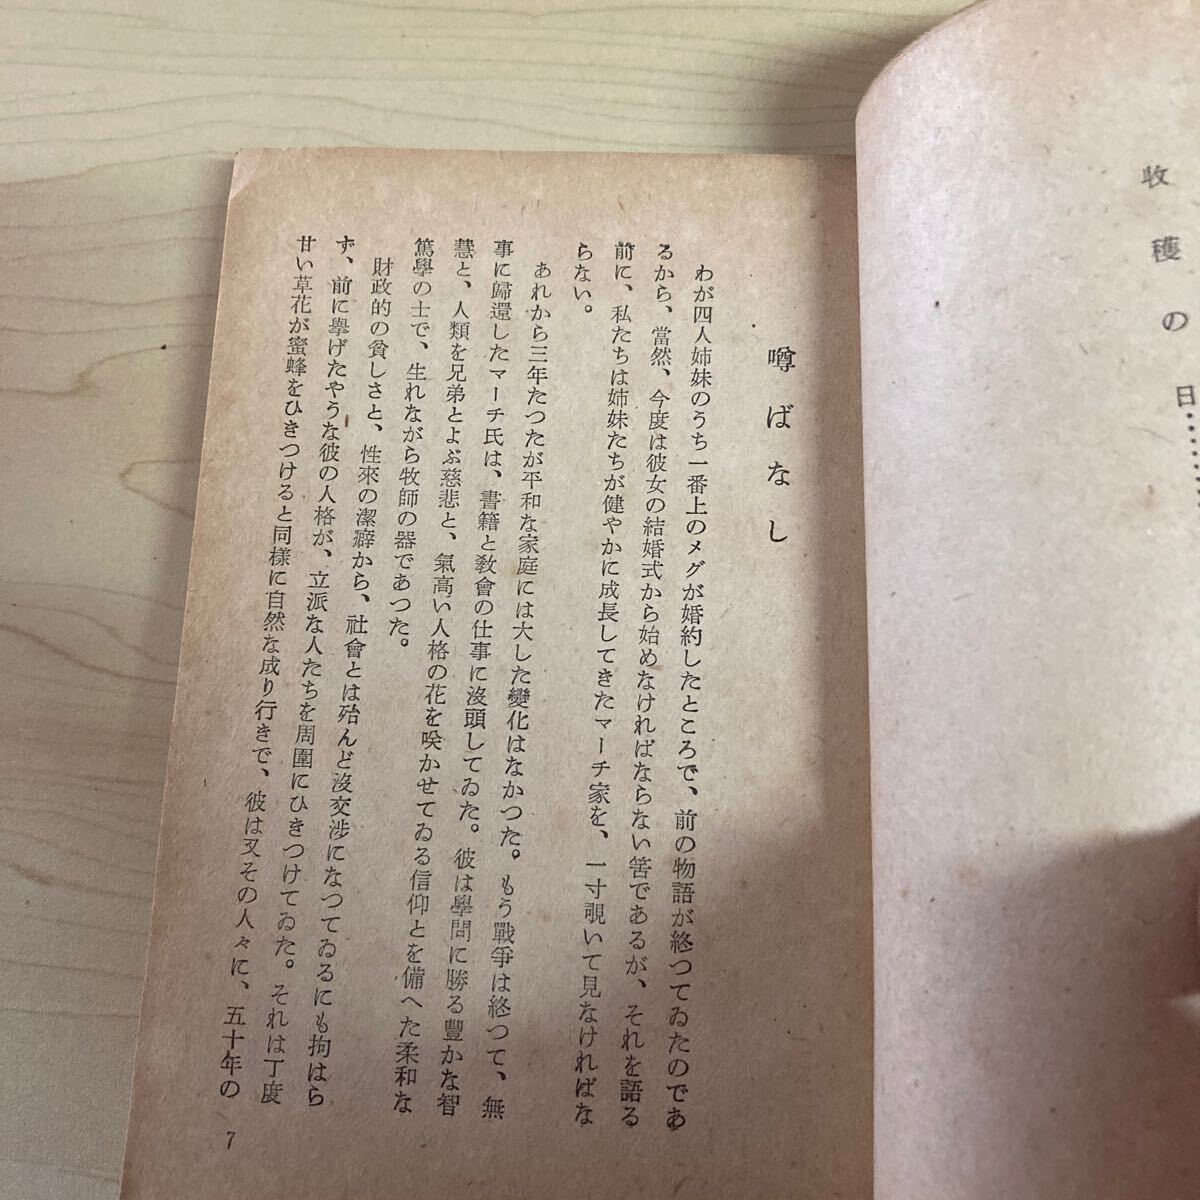 収穫の日………
噂ばなし
わが四人姉妹のうち一番上のメグが婚約したところで、前の物語が終つてゐたのであ
るから、當然、今度は彼女の結婚式から始めなければならない筈であるが、それを語る
前に、私たちは姉妹たちが健やかに成長してきたマーチ家を、一寸覗いて見なければな
らない。
あれから三年たつたが平和な家庭には大した變化はなかつた。もう戰爭は終つて、無
事に歸還したマーチ氏は、書籍と敎會の仕事に沒頭してゐた。彼は學問に勝る豊かな智
慧と、人類を兄弟とよぶ慈悲と、氣高い人格の花を咲かせてゐる信仰とを備へた柔和な
篤學の士で、生れながら牧師の器であつた。
財政的の貧しさと、性來の潔癖から、社會とは殆んど沒交渉になつてゐるにも拘はら
ず、前に擧げたやうな彼の人格が、立派な人たちを周圍にひきつけてゐた。それは丁度
甘い草花が蜜蜂をひきつけると同様に自然な成り行きで、彼は又その人々に、五十年の
7